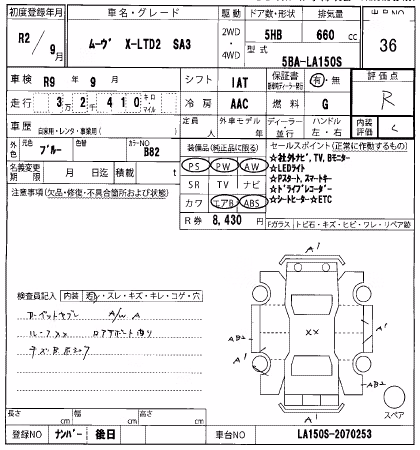 初度登録年月 車名・グレード 駆動 ドア数・形状 排気量 出品NO
R2/9月 ムーヴ X-LTD2 SA3 2WD・4WD 5HB 660cc 36
型式 5BA-LA150S
車検 R9年9月 シフト IAT 保証書 有・無 評価点
走行 3万2千410キロ・マイル 冷房 AAC 燃料 G R
車歴 自家用・レンタ・事業用( ) 定員 人 外車モデル 年 ディーラー・並行 ハンドル 左・右 内装評価 C
外色 元色 ブルー 色替 カラーNO B82 装備品(純正品に限る) セールスポイント(正常に作動するもの)
名義変更期限 月 日迄 積載 t PS PW AW ☆社外ナビ,TV,Bモニター
注意事項(欠品・修復・不具合箇所および状態) SR TV ナビ ☆LEDライト
カワ エアB ABS ☆Pスタート,スマートキー
☆ドライブレコーダー
☆シートヒーター☆ETC
R券 8,430円 Fガラス トビ石・キズ・ヒビ・ワレ・リペア跡
A1
検査員記入 内装 若・スレ・キズ・キレ・コゲ・穴
A/W A
XX
A1
A1
A1
長さcm 幅cm 高さcm スペア
登録NO ナンバー 後日 車台NO LA150S-2070253